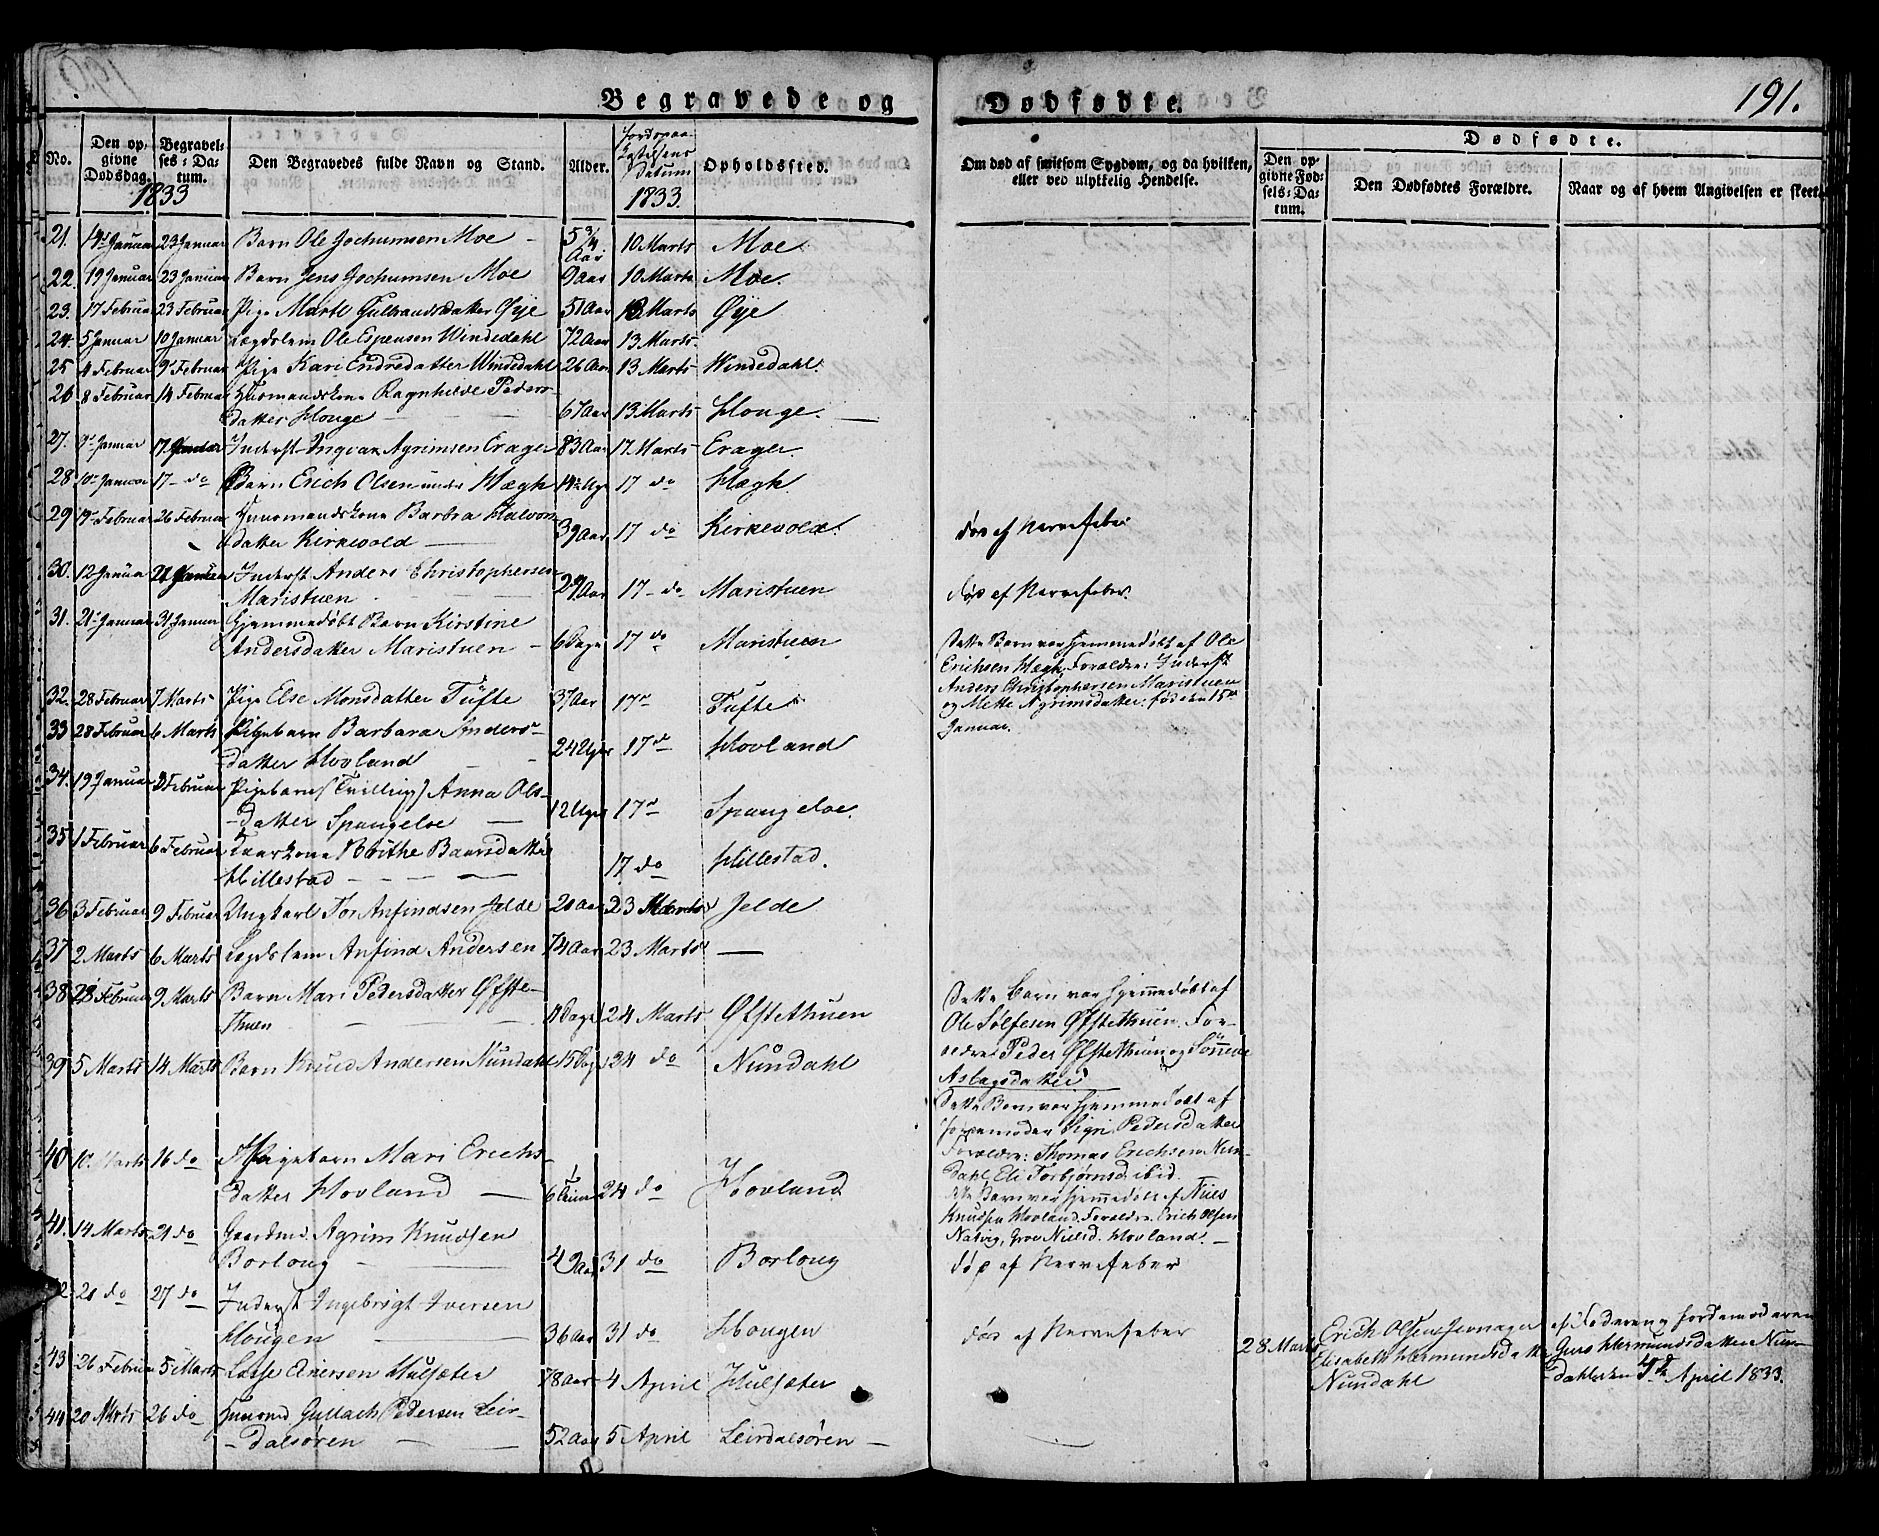 Begravede og Dødfødte. 191.
No. Den opgivne Dødsdag. Begravelses-Datum. Den Begravedes fulde Navn og Stand. Alder. Jordspaakastelsens Datum Opholdssted. Om død af smitsom Sygdom, og da hvilken, eller ved ulykkelig Hendelse. Dødfødte. Den opgivne Fødsels-Datum. Den Dødfødtes Forældre. Naar og af hvem Angivelsen er skeet
1833 1833.
21. 19 Januar 23 Januar Barn Ole Jochumsen Moe 5 3/4 Aar 10 Marts Moe
22. 19 Januar 23 Januar Barn Jens Jochumsen Moe 9 Aar 10 Marts Moe.
23. 17 Februar 23 Februar Pige Marte Gulbrandsdatter Øye 51 Aar 13 Marts Øye
24 5 Januar 10 Januar Lægdslem Ole Espensen Windedahl 72 Aar 13 Marts
25 4 Februar 9 Februar Pige Kari Endredatter Windedahl 26 Aar 13 Marts Windedahl.
26 8 Februar 14 Februar Huusmandskone Ragnhilde Peders-
datter Houge 67 Aar 13 Marts Houge.
27. 9 Januar 17 Januar Inderst Ingvar Agrimsen Erager 83 Aar 17 Marts Erager
28 10 Januar 17 do Barn Erich Olsen Hægh 14 Uger 17 do Hægh
29 19 Februar 26 Februar Huusmandskone Barbra Halvors-
datter Kirkevold 39 Aar 17 do Kirkevold. Død af Nervefeber
30. 12 Januar 21 Januar Inderst Anders Christophersen
Maristuen 29 Aar 17 do Maristuen Død af Nervefeber.
31. 21 Januar 31 Januar Hjemmedøbt Barn Kirstine
Andersdatter Maristuen 6 Dage 17 do Maristuen Dette Barn var hjemmedøbt af Ole
Erichsen Hægh, Forældre: Inderst
Anders Christophersen Maristuen
og Mette Agrimsdatter. fød den 15de
Januar.
32. 28 Februar 7 Marts Pige Else Monsdatter Tufte 37 Aar 17 Tufte
33 28 Februar 6 Marts Pigebarn Barbara Anders-
datter Hovland 24 Uger 17 Hovland
34. 19 Januar Februar Pigebarn (Tvilling) Anna Ols-
datter Spangeloe 12 Uger 17 Spangeloe.
35 1 Februar 6 Februar Brithe Baarsdatter
Hillestad 17 do Hillestad.
36 3 Februar 9 Februar Ungkarl Tor Anfindsen Jelde 20 Aar 23 Marts Jelde
37 2 Marts 6 Marts Lægdslem Anfind Andersen 74 Aar 23 Marts —
38 28 Februar 9 Marts Barn Mari Pedersdatter Øfste-
Thuen 11 Dage 24 Marts Øfstethuen Dette Barn var hjemmedøbt af
Ole Sølfesen Øfstethuen. For-
ældre: Peder Øfstethuen og Sønneve
Aslagsdatter
39 5 Marts 14 Marts Barn Knud Andersen Nundahl 15 Dage 24 do Nundahl
Dette Barn var hjemmedøbt af
Sigri Pedersdatter
Forældre: Thomas Erichsen Nun-
dahl Eli Torbjørnsd. ibid.
40 10. Marts 16 do Pigebarn Mari Erichs-
datter Hovland 6 Timer 24 do Hovland Dette Barn var hjemmedøbt af Niels
Knudsen Hovland. Forældre. Erich Olsen
Natvig, Gro Nielsd. Hovland.
41. 14 Marts 21 do Gaardmd. Agrim Knudsen
Borloug 42 Aar 31 do Borloug Død af Nervefeber
42. 20 do 27 do Inderst Ingebrigt Iversen
Hougen 36 Aar 31 do Hougen Død af Nervefeber
28 Marts Erich Olsen
Elisabeth Hermundsdatter
Nundahl af Faderen og Jordemoderen
Guro Hermundsdatter Nun-
dahl den April 1833.
43 26 Februar 5 Marts Lasse Hulsæter 78 Aar 4 April Hulsæter
44 20 Marts 26 do Huusmd. Gullach Pedersen Leir-
dalsøren 52 Aar 5 April Leirdalsøren